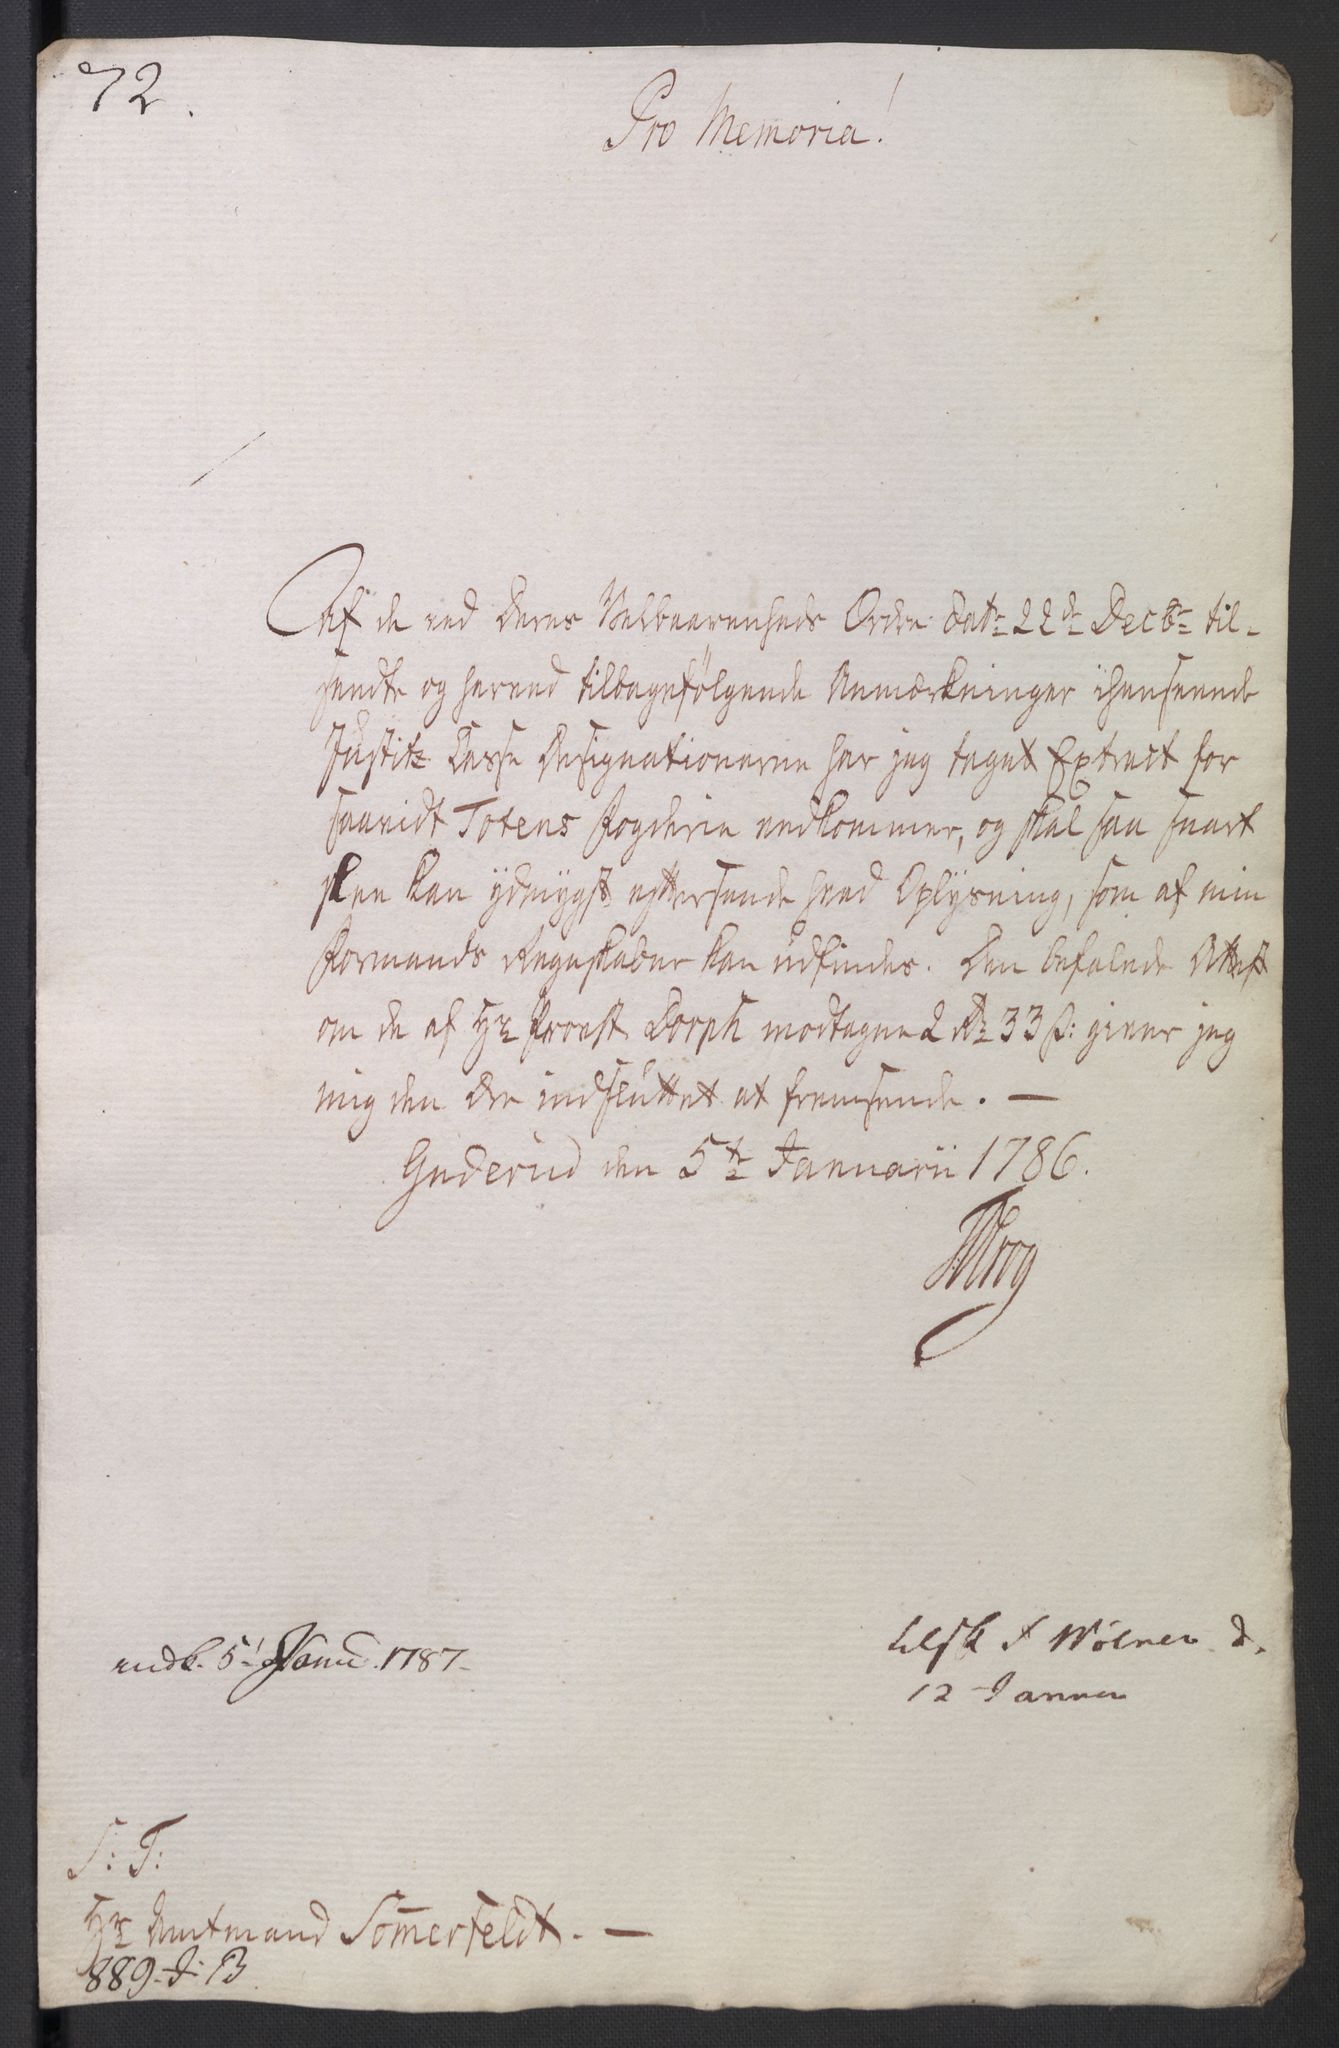 72.
Pro Memoria!
Af de ved Deres Velbaarenheds Ordre Dat: 22de Decbr til-
sendte og herved tilbagefølgende Anmærkninger ihenseende
Justitz Casse Designationerne har jeg taget Extract for
saavidt Totens Fogderie vedkommer, og skal saa snart
skee kan ydmygst eftersende hvad Oplysning, som af min
Formands Regnskaber kan udfindes. Den befalede Attest
om de af Hr Provst Dorph modtagne 2 Rd 33 s: giver jeg
mig den Ære indsluttet at fremsende. —
Gaderud den 5te Januarii 1786.
indk. 5' Janu. 1787-
tilsk f Wølner d.
12 Januer
S: T:
Hr Amtmand Somerfeldt. —
889. J: B